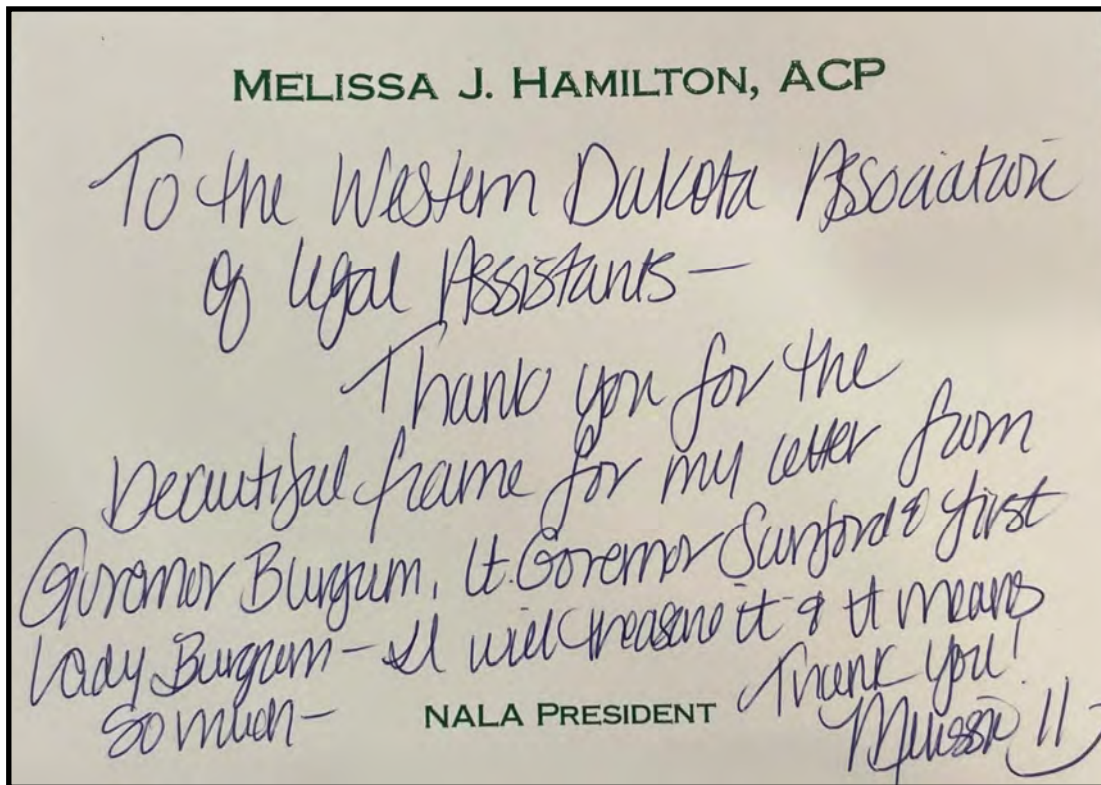 MELISSA J. HAMILTON, ACP
To the Western Dakota Association
of Legal Assistants —
Thank you for the
beautiful frame for my letter from
Governor Burgum, Lt. Governor Sanford & First
Lady Burgum – I will treasure it & it means
so much –
NALA PRESIDENT
Thank you!
Melissa